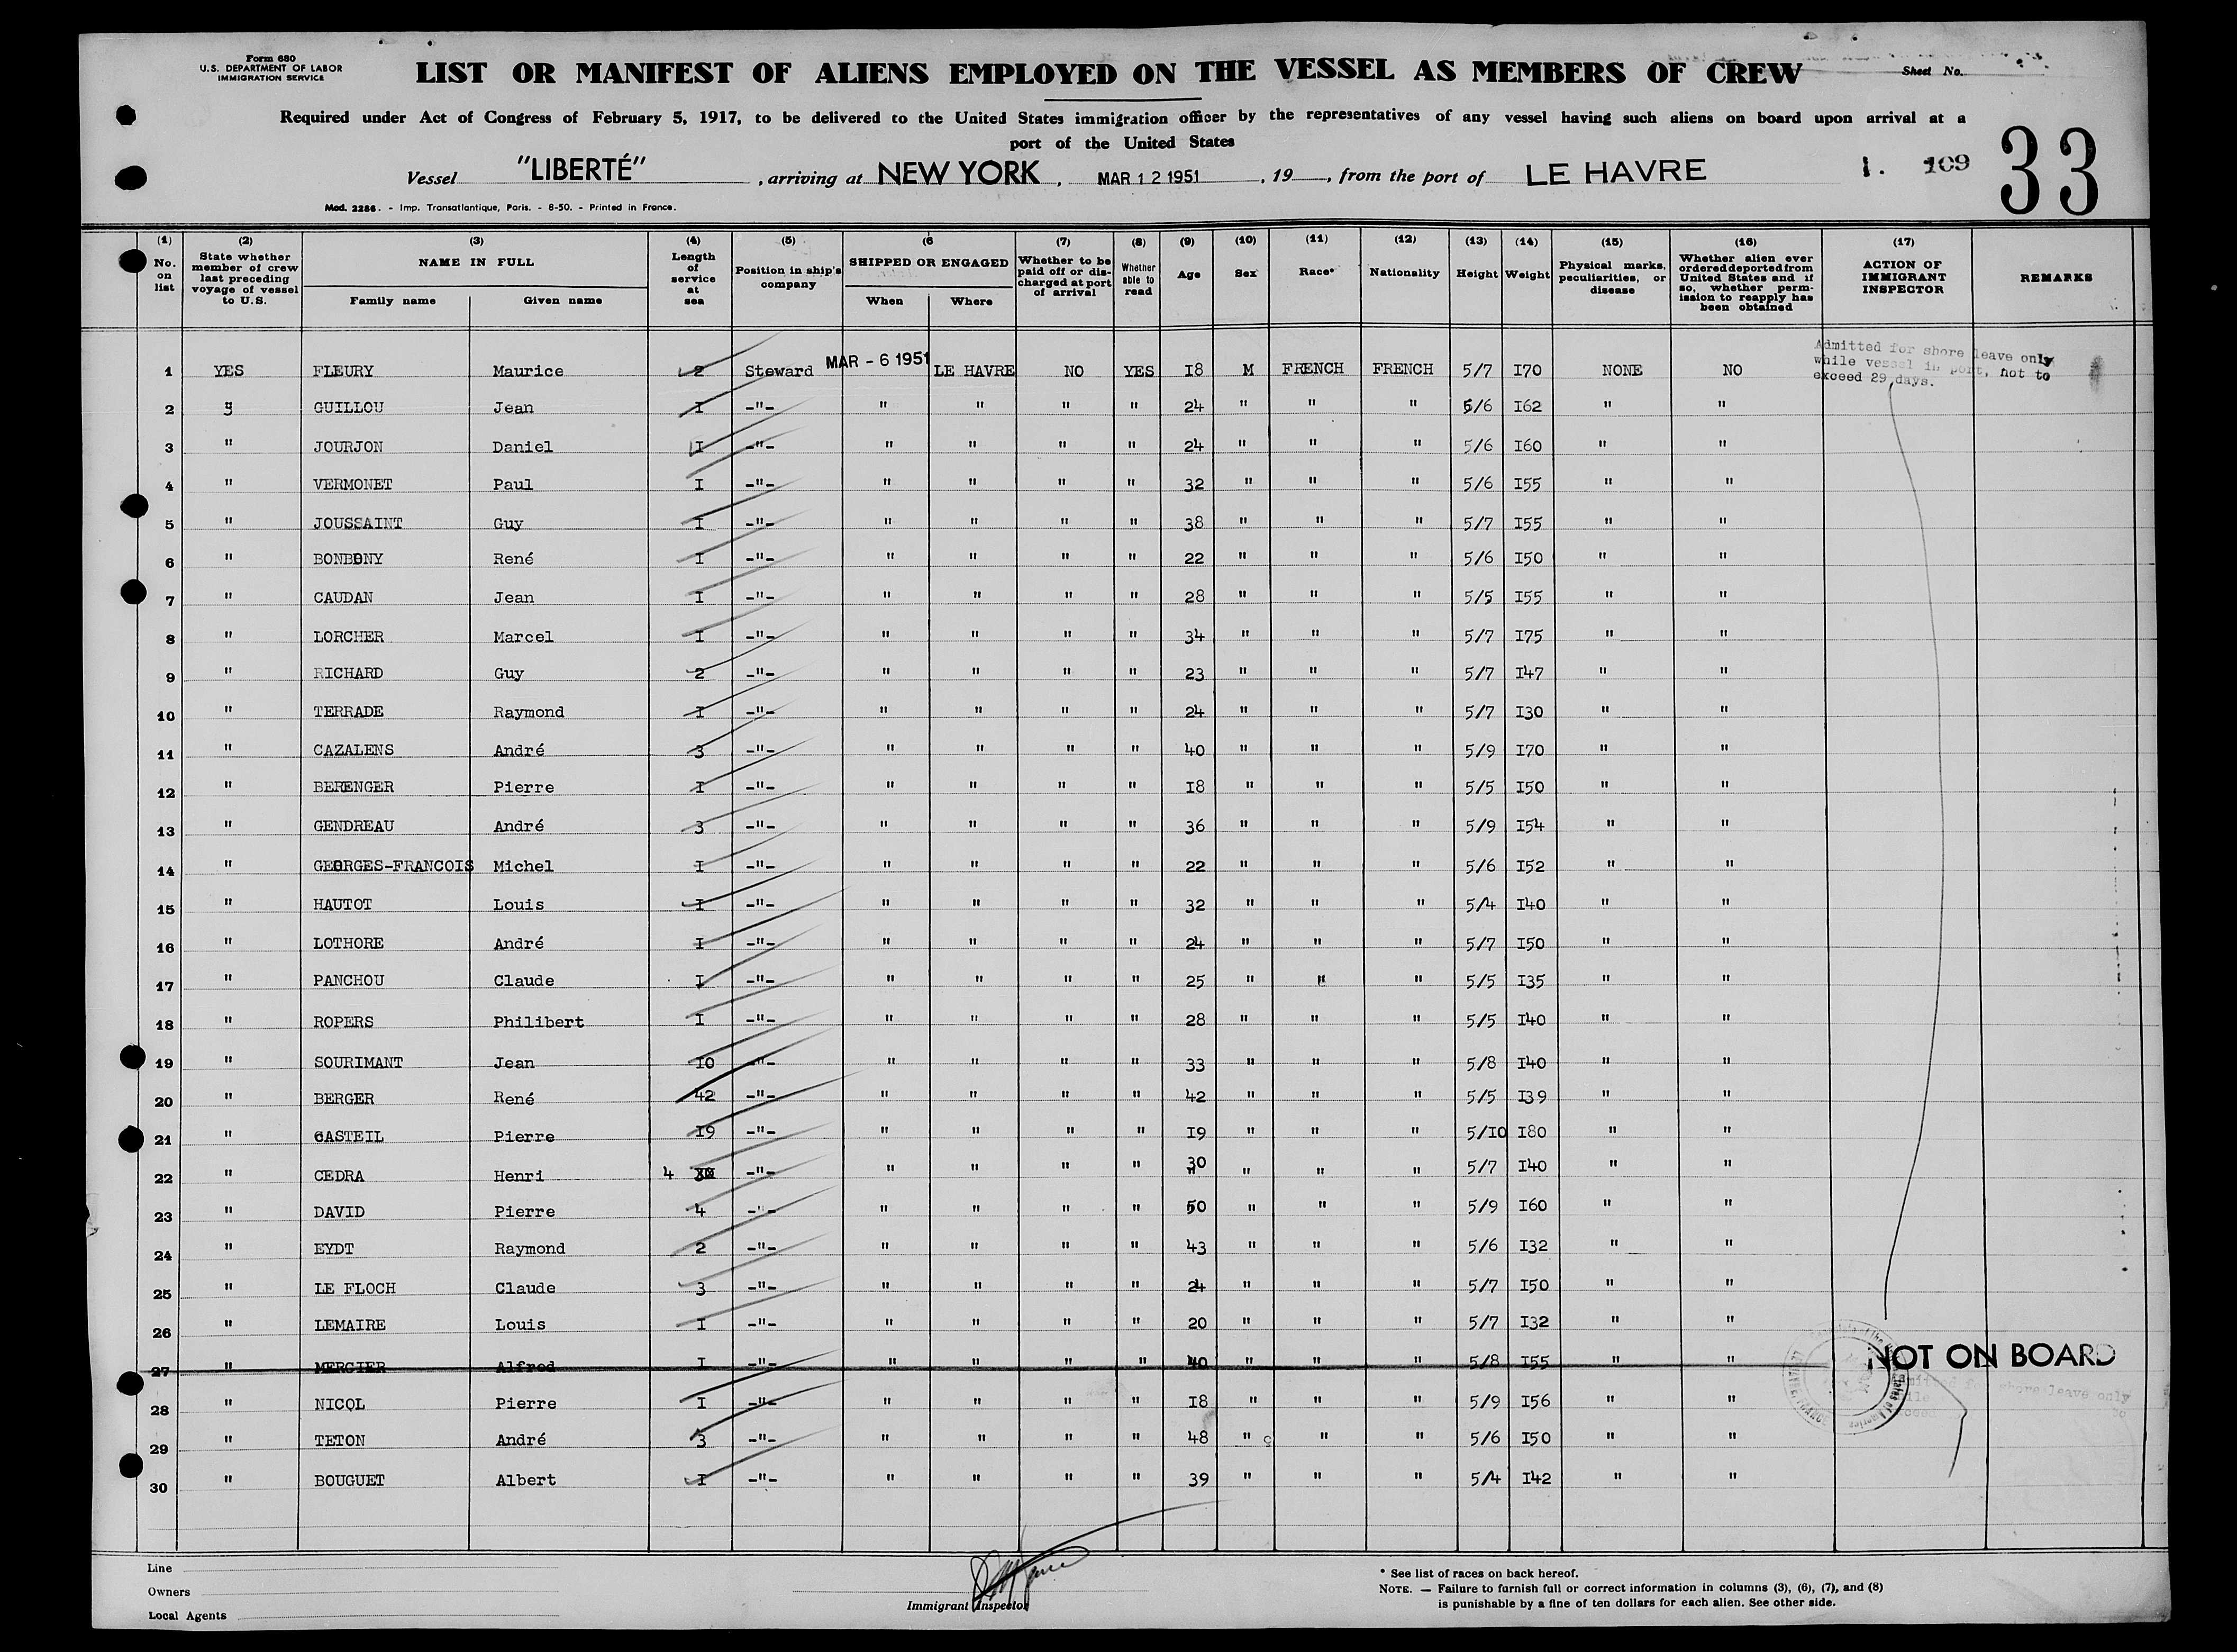 Form 680
U.S. DEPARTMENT OF LABOR
IMMIGRATION SERVICE
LIST OR MANIFEST OF ALIENS EMPLOYED ON THE VESSEL AS MEMBERS OF CREW
Sheet No.
Required under Act of Congress of February 5, 1917, to be delivered to the United States immigration officer by the representatives of any vessel having such aliens on board upon arrival at a
port of the United States
Vessel "LIBERTÉ", arriving at NEW YORK, MAR 12 1951, 19, from the port of LE HAVRE 1. 109 33
Mod. 2286. - Imp. Transatlantique, Paris. - 8-50. - Printed in France.
(1) No. on list
(2) State whether member of crew last preceding voyage of vessel to U.S.
(3) NAME IN FULL Family name Given name
(4) Length of service at sea
(5) Position in ship's company
(6 SHIPPED OR ENGAGED When Where
(7) Whether to be paid off or discharged at port of arrival
(8) Whether able to read
(9) Age
(10) Sex
(11) Race*
(12) Nationality
(13) Height
(14) Weight
(15) Physical marks, peculiarities, or disease
(16) Whether alien ever ordered deported from United States and if so, whether permission to reapply has been obtained
(17) ACTION OF IMMIGRANT INSPECTOR
REMARKS
1 YES FLEURY Maurice 2 Steward MAR - 6 1951 LE HAVRE NO YES 18 M FRENCH FRENCH 5/7 I70 NONE NO
Admitted for shore leave only
while vessel in port, not to
exceed 29 days.
2 " GUILLOU Jean I -"- " " " " 24 " " " 5/6 I62 " "
3 " JOURJON Daniel I -"- " " " " 24 " " " 5/6 I60 " "
4 " VERMONET Paul I -"- " " " " 32 " " " 5/6 I55 " "
5 " JOUSSAINT Guy I -"- " " " " 38 " " " 5/7 I55 " "
6 " BONBONY René I -"- " " " " 22 " " " 5/6 I50 " "
7 " CAUDAN Jean I -"- " " " " 28 " " " 5/5 I55 " "
8 " LORCHER Marcel I -"- " " " " 34 " " " 5/7 I75 " "
9 " RICHARD Guy 2 -"- " " " " 23 " " " 5/7 I47 " "
10 " TERRADE Raymond I -"- " " " " 24 " " " 5/7 I30 " "
11 " CAZALENS André 3 -"- " " " " 40 " " " 5/9 I70 " "
12 " BERENGER Pierre I -"- " " " " I8 " " " 5/5 I50 " "
13 " GENDREAU André 3 -"- " " " " 36 " " " 5/9 I54 " "
14 " GEORGES-FRANCOIS Michel I -"- " " " " 22 " " " 5/6 I52 " "
15 " HAUTOT Louis I -"- " " " " 32 " " " 5/4 I40 " "
16 " LOTHORE André I -"- " " " " 24 " " " 5/7 I50 " "
17 " PANCHOU Claude I -"- " " " " 25 " " " 5/5 I35 " "
18 " ROPERS Philibert I -"- " " " " 28 " " " 5/5 I40 " "
19 " SOURIMANT Jean I0 -"- " " " " 33 " " " 5/8 I40 " "
20 " BERGER René 42 -"- " " " " 42 " " " 5/5 I39 " "
21 " CASTEIL Pierre I9 -"- " " " " I9 " " " 5/I0 I80 " "
22 " CEDRA Henri 4 -"- " " " " 30 " " " 5/7 I40 " "
23 " DAVID Pierre 4 -"- " " " " 50 " " " 5/9 I60 " "
24 " EYDT Raymond 2 -"- " " " " 43 " " " 5/6 I32 " "
25 " LE FLOCH Claude 3 -"- " " " " 24 " " " 5/7 I50 " "
26 " LEMAIRE Louis I -"- " " " " 20 " " " 5/7 I32 " "
27 " MERCIER Alfred I -"- " " " " 40 " " " 5/8 I55 " " NOT ON BOARD
28 " NICOL Pierre I -"- " " " " I8 " " " 5/9 I56 " "
29 " TETON André 3 -"- " " " " 48 " " " 5/6 I50 " "
30 " BOUGUET Albert I -"- " " " " 39 " " " 5/4 I42 " "
Line
Owners
Local Agents
Immigrant Inspector
* See list of races on back hereof.
NOTE. — Failure to furnish full or correct information in columns (3), (6), (7), and (8)
is punishable by a fine of ten dollars for each alien. See other side.